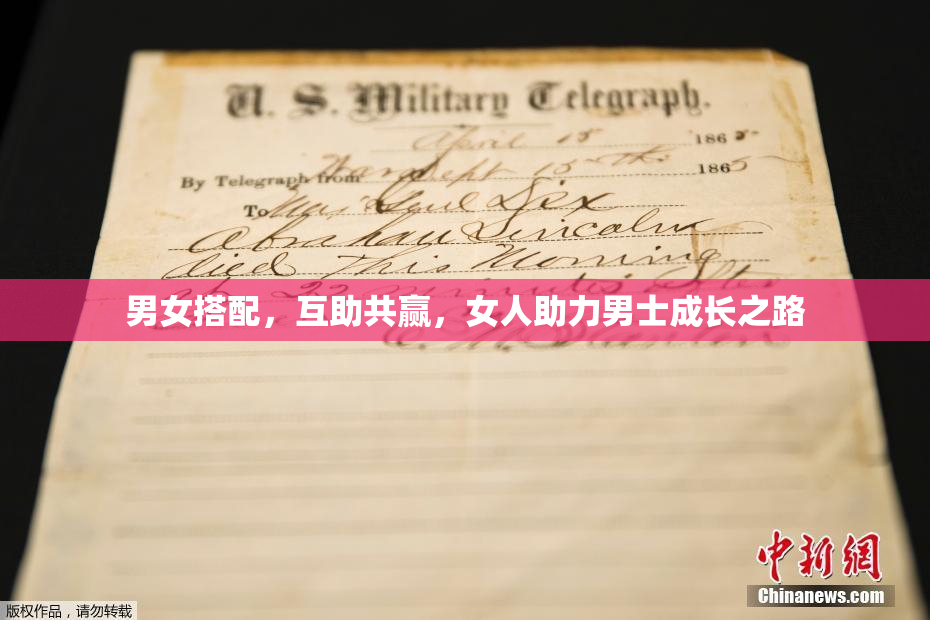 U. S. Military Telegraph.
April 15 1865
By Telegraph from War Dept 15th 1865
To Maj Genl Dix
Abraham Lincoln
died This Morning
at 22 minutes after
男女搭配，互助共赢，女人助力男士成长之路
E. M. Stanton
中新网
Chinanews.com
版权作品，请勿转载